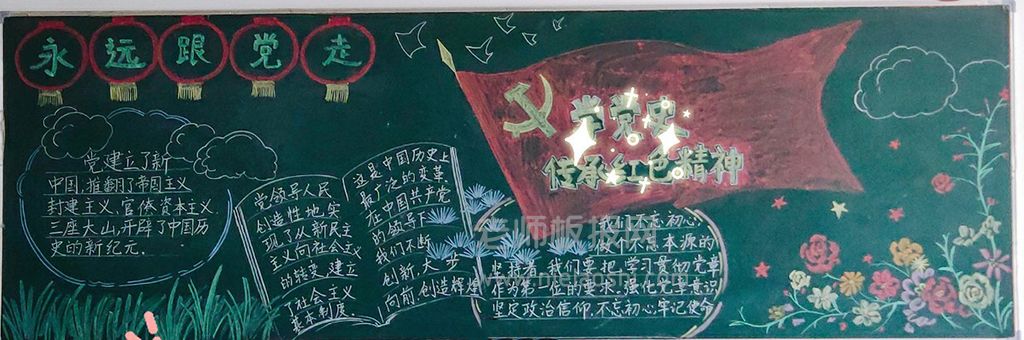 永远跟党走
学党史
传承红色精神
党建立了新
中国,推翻了帝国主义
封建主义、官体资本主义
三座大山,开辟了中国历
史的新纪元.
党领导人民
创造性地实
现了从新民主
主义向社会主义
的转变,建立
了社会主义
基本制度.
这是中国历史上
最广泛的变革,
在中国共产党
的领导下
我们不断
创新,大步
向前,创造辉煌
我们不忘初心,
做个不忘本源的
坚持者,我们要把学习贯彻党章
作为第一位的要求,强化党章意识
坚定政治信仰,不忘初心牢记使命
老师板报网